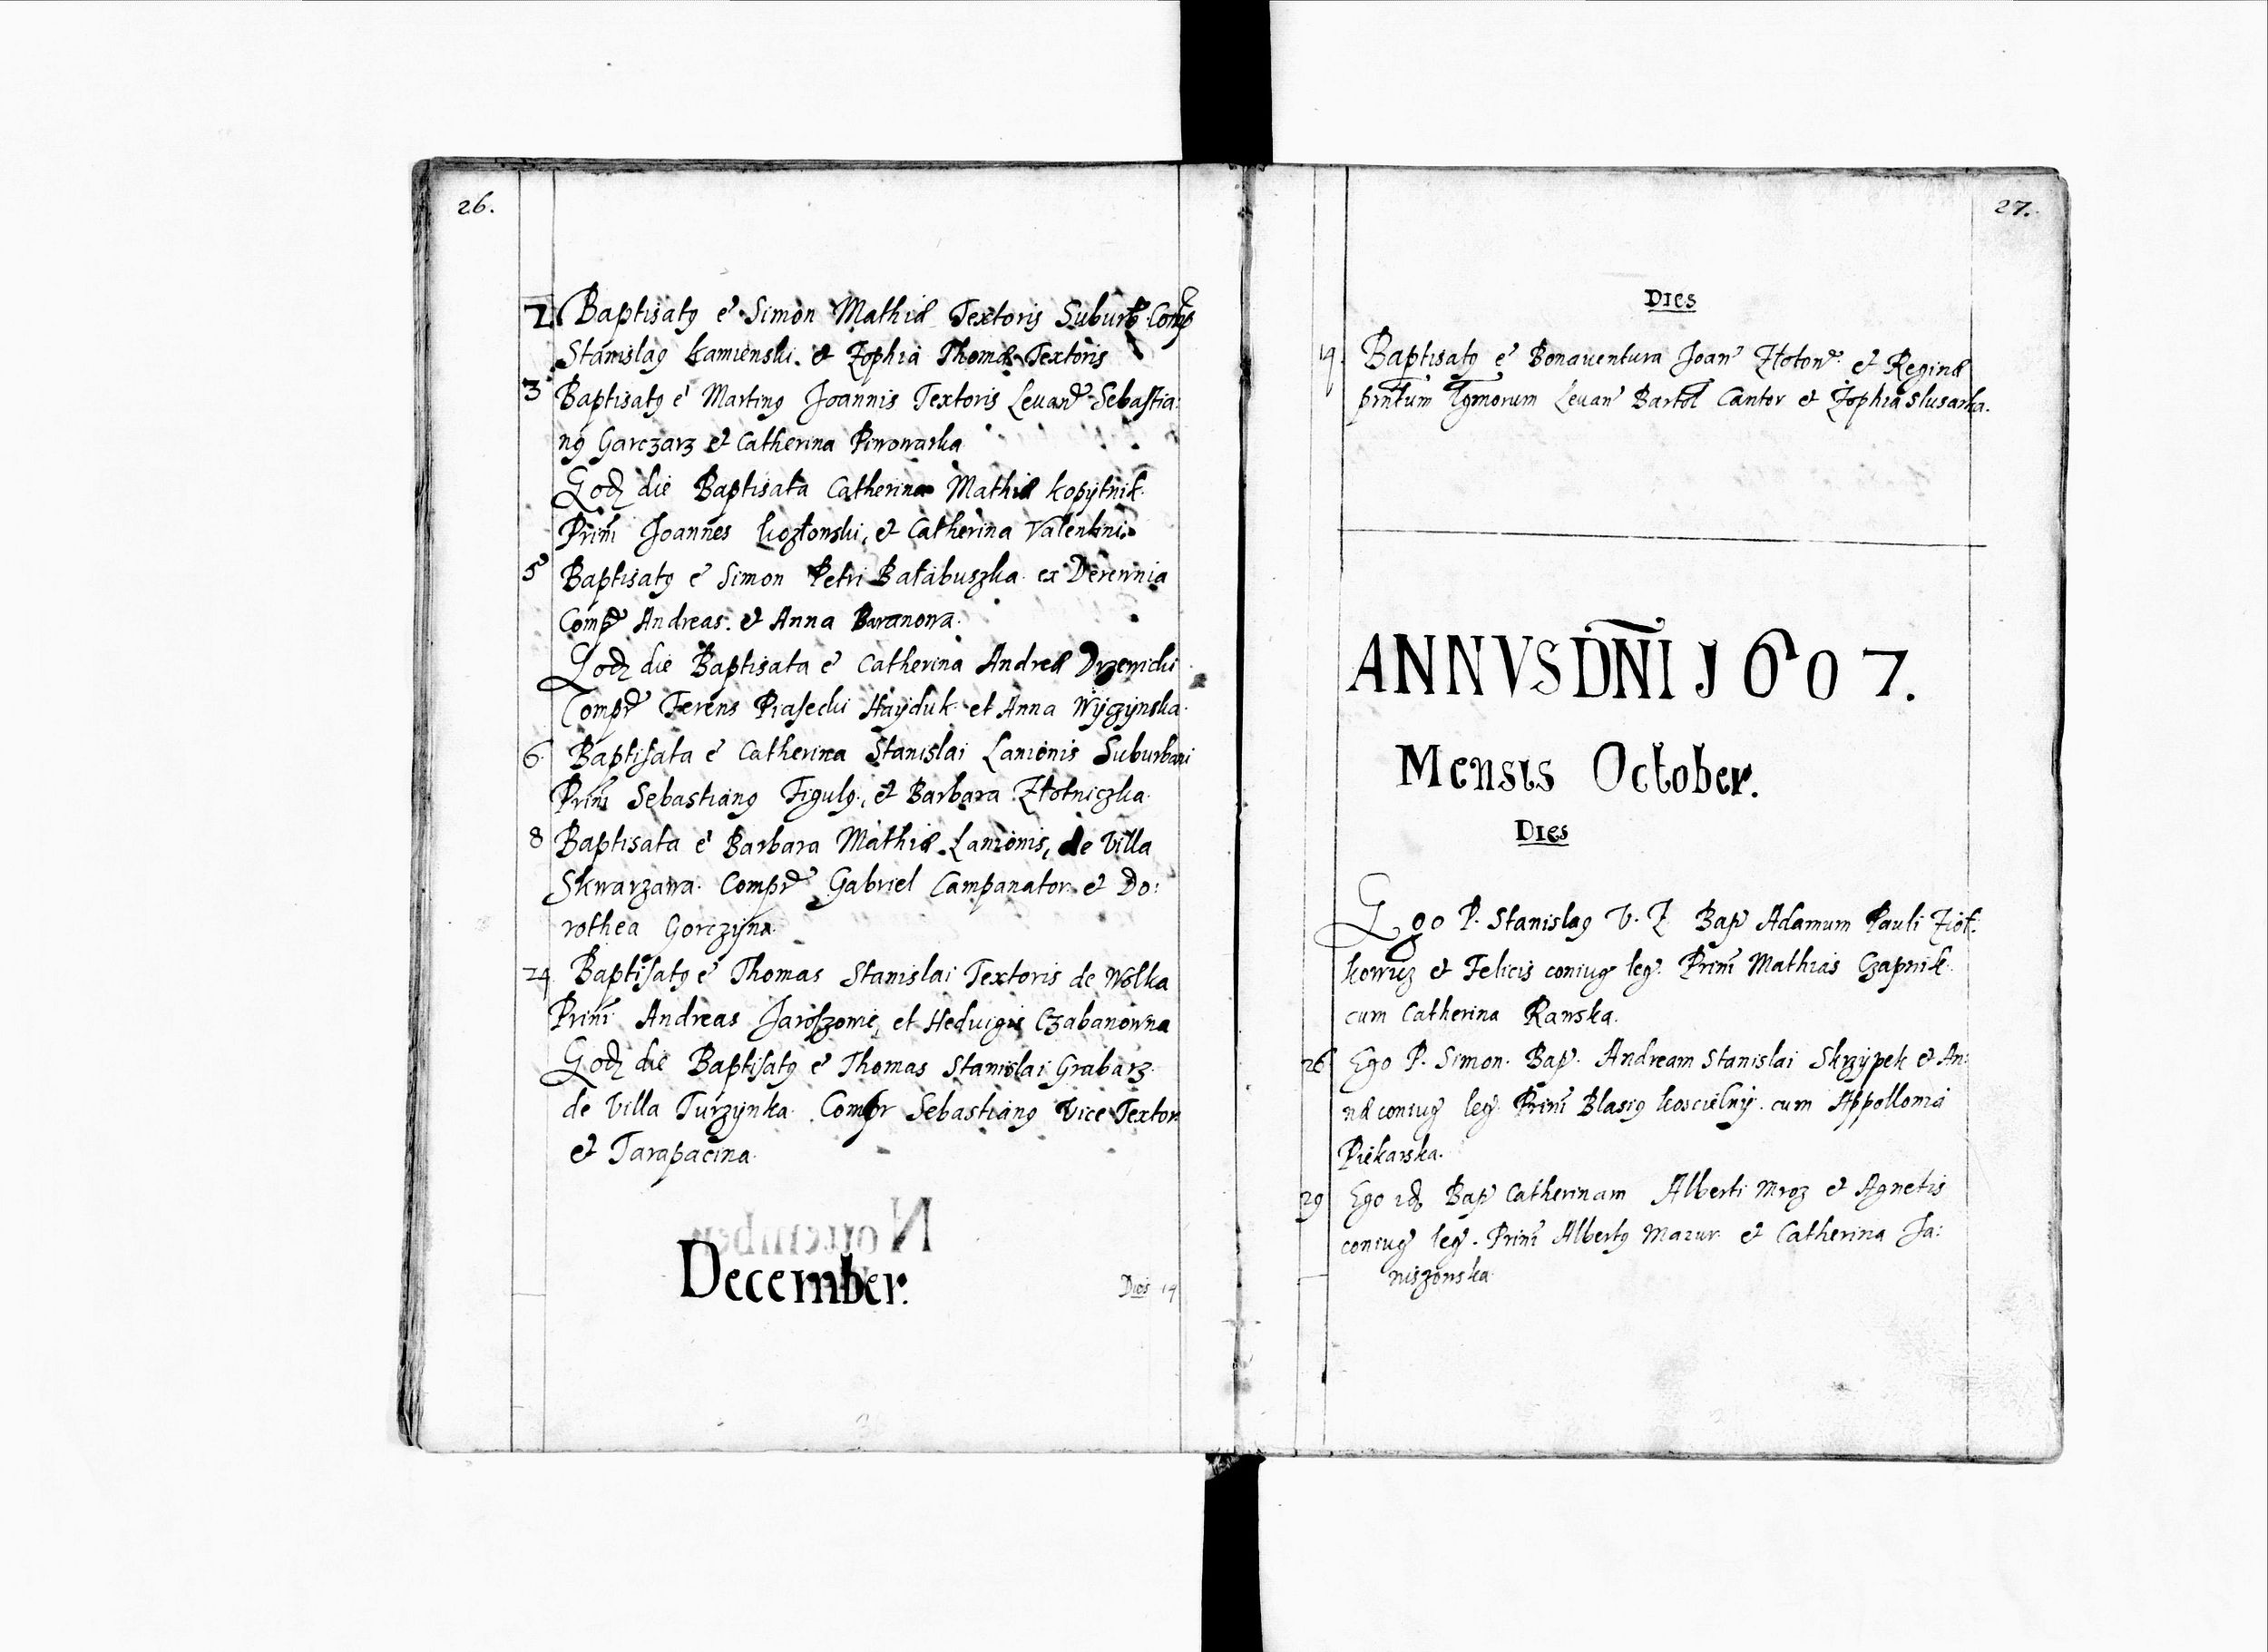 26.
2 Baptisatꝰ e Simon Mathiæ Textoris Suburb. Comp
Stanislaꝰ Kamienski. et Zophia Thomæ Textoris
3 Baptisatꝰ e Martinꝰ Joannis Textoris Levan Sebastia:
nꝰ Garczarz et Catherina Piwowarka
Eod die Baptisata Catherina Mathiæ Kopytnik.
Prim Joannes Kozłowski, et Catherina Valentini.
5 Baptisatꝰ e Simon Petri Bałabuszka ex Derewnia
Comp Andreas. et Anna Baranowa.
Eod die Baptisata e Catherina Andreæ Drzewicki
Compr Ferens Piasecki Hayduk et Anna Wyczynska.
6. Baptisata e Catherina Stanislai Lanionis Suburbani
Prim Sebastianꝰ Figulꝰ, et Barbara Złotniczka.
8 Baptisata e Barbara Mathiæ Lanionis, de Villa
Skwarzawa. Compr Gabriel Campanator et Do:
rothea Gorczyna.
24 Baptisatꝰ e Thomas Stanislai Textoris de Wolka
Prim Andreas Jaroszowic, et Hedvigis Czabanowna
Eod die Baptisatꝰ e Thomas Stanislai Grabarz.
de Villa Turzynka. Compr Sebastianꝰ Vice Textor
et Tarapacina.
November
December.
Dies 14
27.
Dies
14. Baptisatꝰ e Bonaventura Joan Złoton et Reginæ
prntum Levan Bartol Cantor et Zophia Slusarka.
ANNVS DNI 1607.
Mensis October.
Dies
Ego P. Stanislaꝰ V. Z. Bap Adamum Pauli Ziół:
kowicz et Felicis coniug leg. Prim Mathias Czapnik.
cum Catherina Ranska.
26 Ego P. Simon. Bap. Andream Stanislai Skrzypek et An:
næ coniug leg. Prim Blasiꝰ Koscielny. cum Appollonia
Piekarska.
29 Ego id Bap Catherinam Alberti Mroz et Agnetis
coniug leg. Prim Albertꝰ Mazur et Catherina Ja:
niszowska